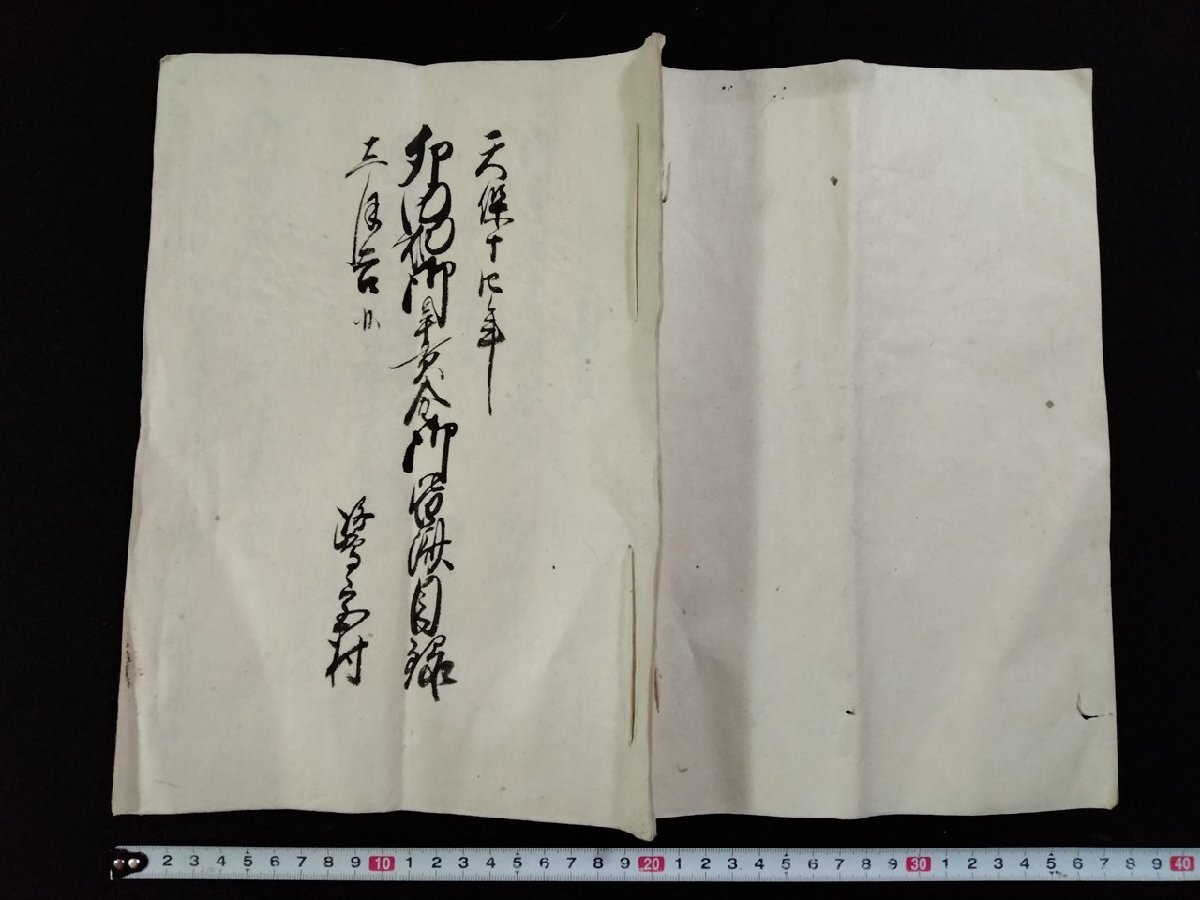 天保十四年
卯 御年貢金御皆済目録
十二月吉日
鷺宮村
2 3 4 5 6 7 8 9 10 1 2 3 4 5 6 7 8 9 20 1 2 3 4 5 6 7 8 9 30 1 2 3 4 5 6 7 8 9 40